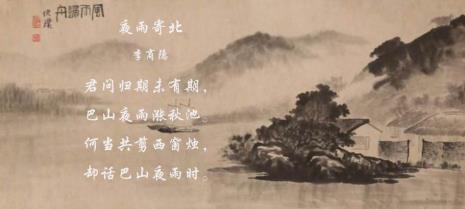 風雨歸舟
夜雨寄北
李商隐
君问归期未有期，
巴山夜雨涨秋池。
何当共剪西窗烛，
却话巴山夜雨时。